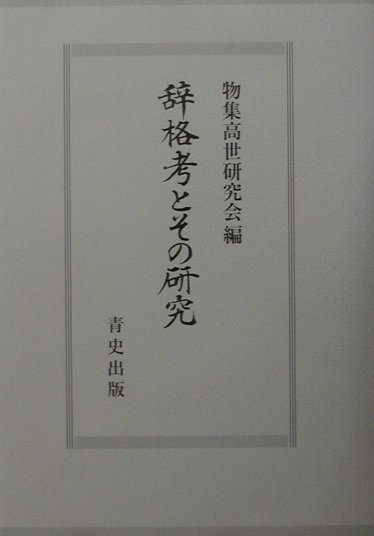 物集高世研究会編
辞格考とその研究
青史出版